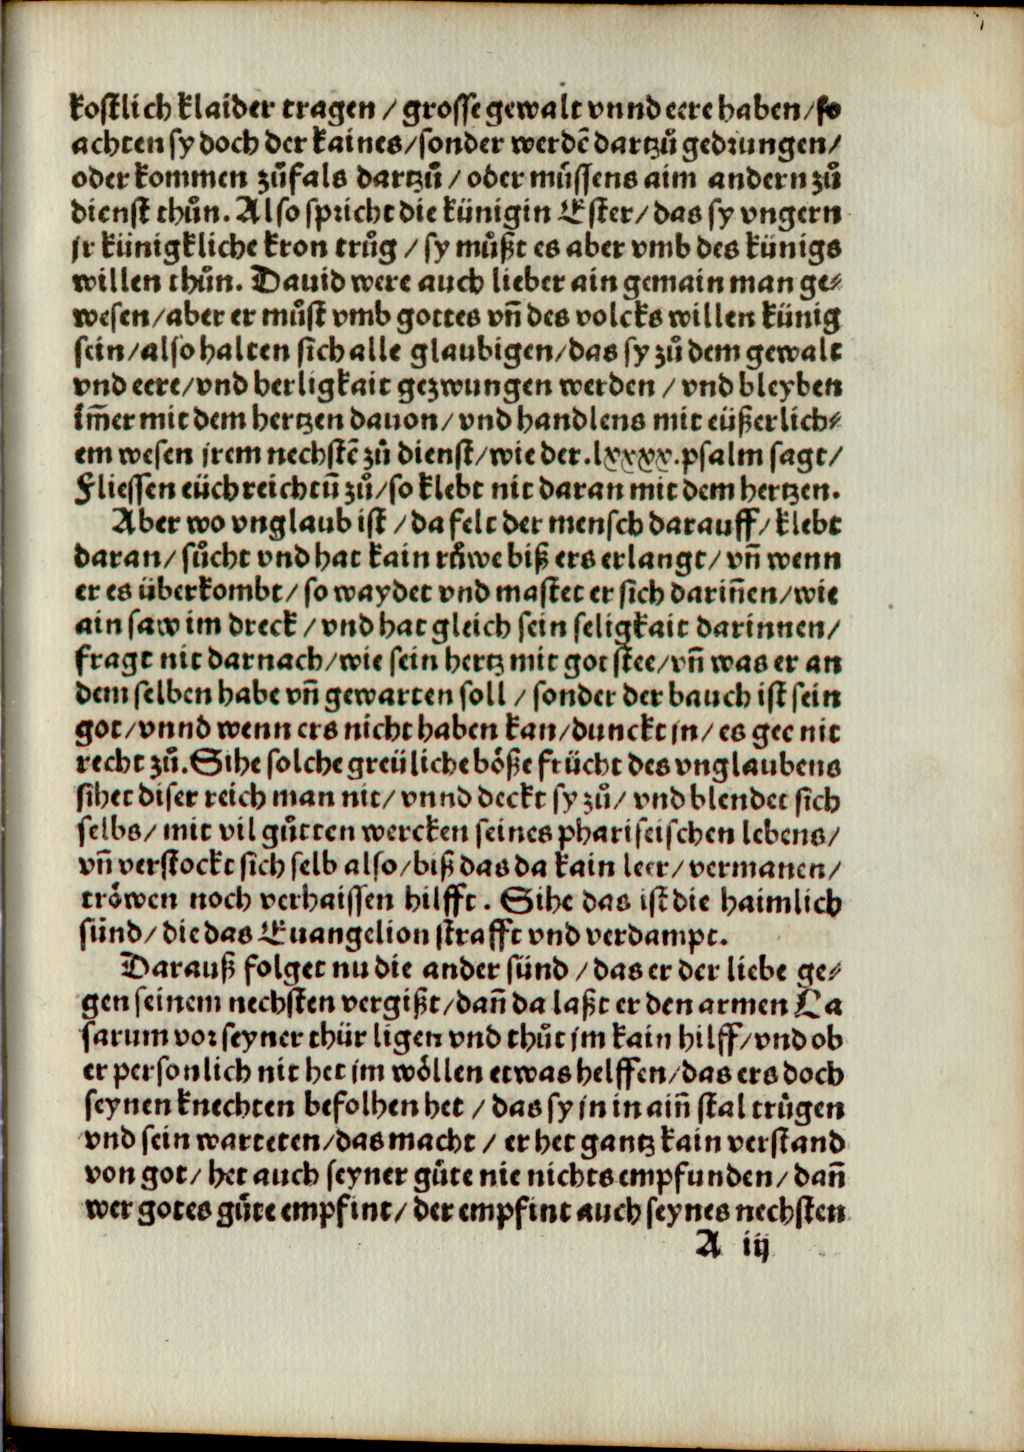 kostlich klaider tragen / grosse gewalt vnnd eere haben / so
achten sy doch der kaines / sonder werdē dartzů gedrungen /
oder kommen zůfals dartzů / oder můssens aim andern zů
dienst thůn. Also spricht die künigin Ester / das sy vngern
jr künigkliche kron trůg / sy můßt es aber vmb des künigs
willen thůn. Dauid were auch lieber ain gemain man ge⸗
wesen / aber er můst vmb gottes vñ des volcks willen künig
sein / also halten sich alle glaubigen / das sy zů dem gewalt
vnd eere / vnd herligkait gezwungen werden / vnd bleyben
im̃er mit dem hertzen dauon / vnd handlens mit eüßerlich⸗
em wesen jrem nechstē zů dienst / wie der .lxxxx. psalm sagt /
Fliessen eüch reichtũ zů / so klebt nit daran mit dem hertzen.
Aber wo vnglaub ist / da felt der mensch darauff / klebt
daran / sůcht vnd hat kain růwe biß ers erlangt / vñ wenn
er es überkombt / so waydet vnd mastet er sich dariñen / wie
ain saw im dreck / vnd hat gleich sein seligkait darinnen /
fragt nit darnach / wie sein hertz mit got stee / vñ was er an
dem selben habe vñ gewarten soll / sonder der bauch ist sein
got / vnnd wenn ers nicht haben kan / dunckt jn / es gee nit
recht zů. Sihe solche greüliche böße frücht des vnglaubens
sihet diser reich man nit / vnnd deckt sy zů / vnd blendet sich
selbs / mit vil gůtten wercken seines phariseischen lebens /
vñ verstockt sich selb also / biß das da kain leer / vermanen /
tröwen noch verhaissen hilfft. Sihe das ist die haimlich
sünd / die das Euangelion strafft vnd verdampt.
Darauß folget nu die ander sünd / das er der liebe ge⸗
gen seinem nechsten vergißt / dañ da laßt er den armen La
sarum vor seyner thür ligen vnd thůt jm kain hilff / vnd ob
er personlich nit het jm wöllen etwas helffen / das ers doch
seynen knechten befolhen het / das sy jn in aiñ stal trůgen
vnd sein warteten / das macht / er het gantz kain verstand
von got / het auch seyner gůte nie nichts empfunden / dañ
wer gotes gůte empfint / der empfint auch seynes nechsten
A iij